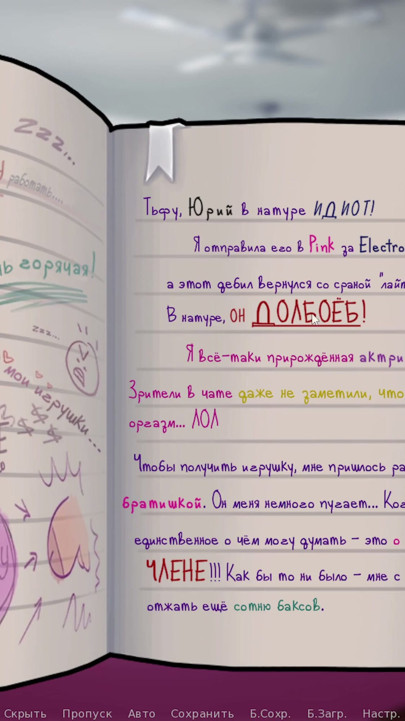 zzz...
работать...
ь горячая!
zzz...
мои игрушки...
Тьфу, Юрий в натуре ИДИОТ!
Я отправила его в Pink за Electro
а этот дебил вернулся со сраной "лайт
В натуре, ОН ДОЛБОЁБ!
Я всё-таки прирождённая актри
Зрители в чате даже не заметили, что
оргазм... ЛОЛ
Чтобы получить игрушку, мне пришлось ра
братишкой. Он меня немного пугает... Ког
единственное о чём могу думать – это о
ЧЛЕНЕ!!! Как бы то ни было – мне с
отжать ещё сотню баксов.
Скрыть Пропуск Авто Сохранить Б.Сохр. Б.Загр. Настр.